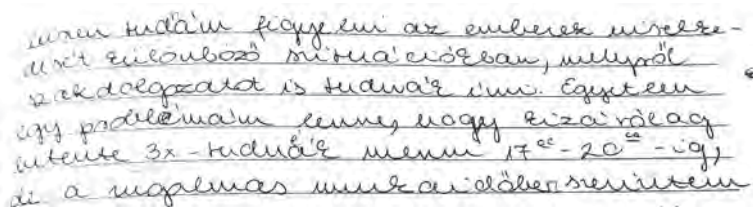 hiszen tudnám figyelni az emberek viselke-
dését különböző szituációkban, melyről
szakdolgozatot is tudnák írni. Egyetlen
egy problémám lenne, hogy kizárólag
hetente 3x tudnák menni 17 - 20 - ig,
de a rugalmas munkaidőben szerintem